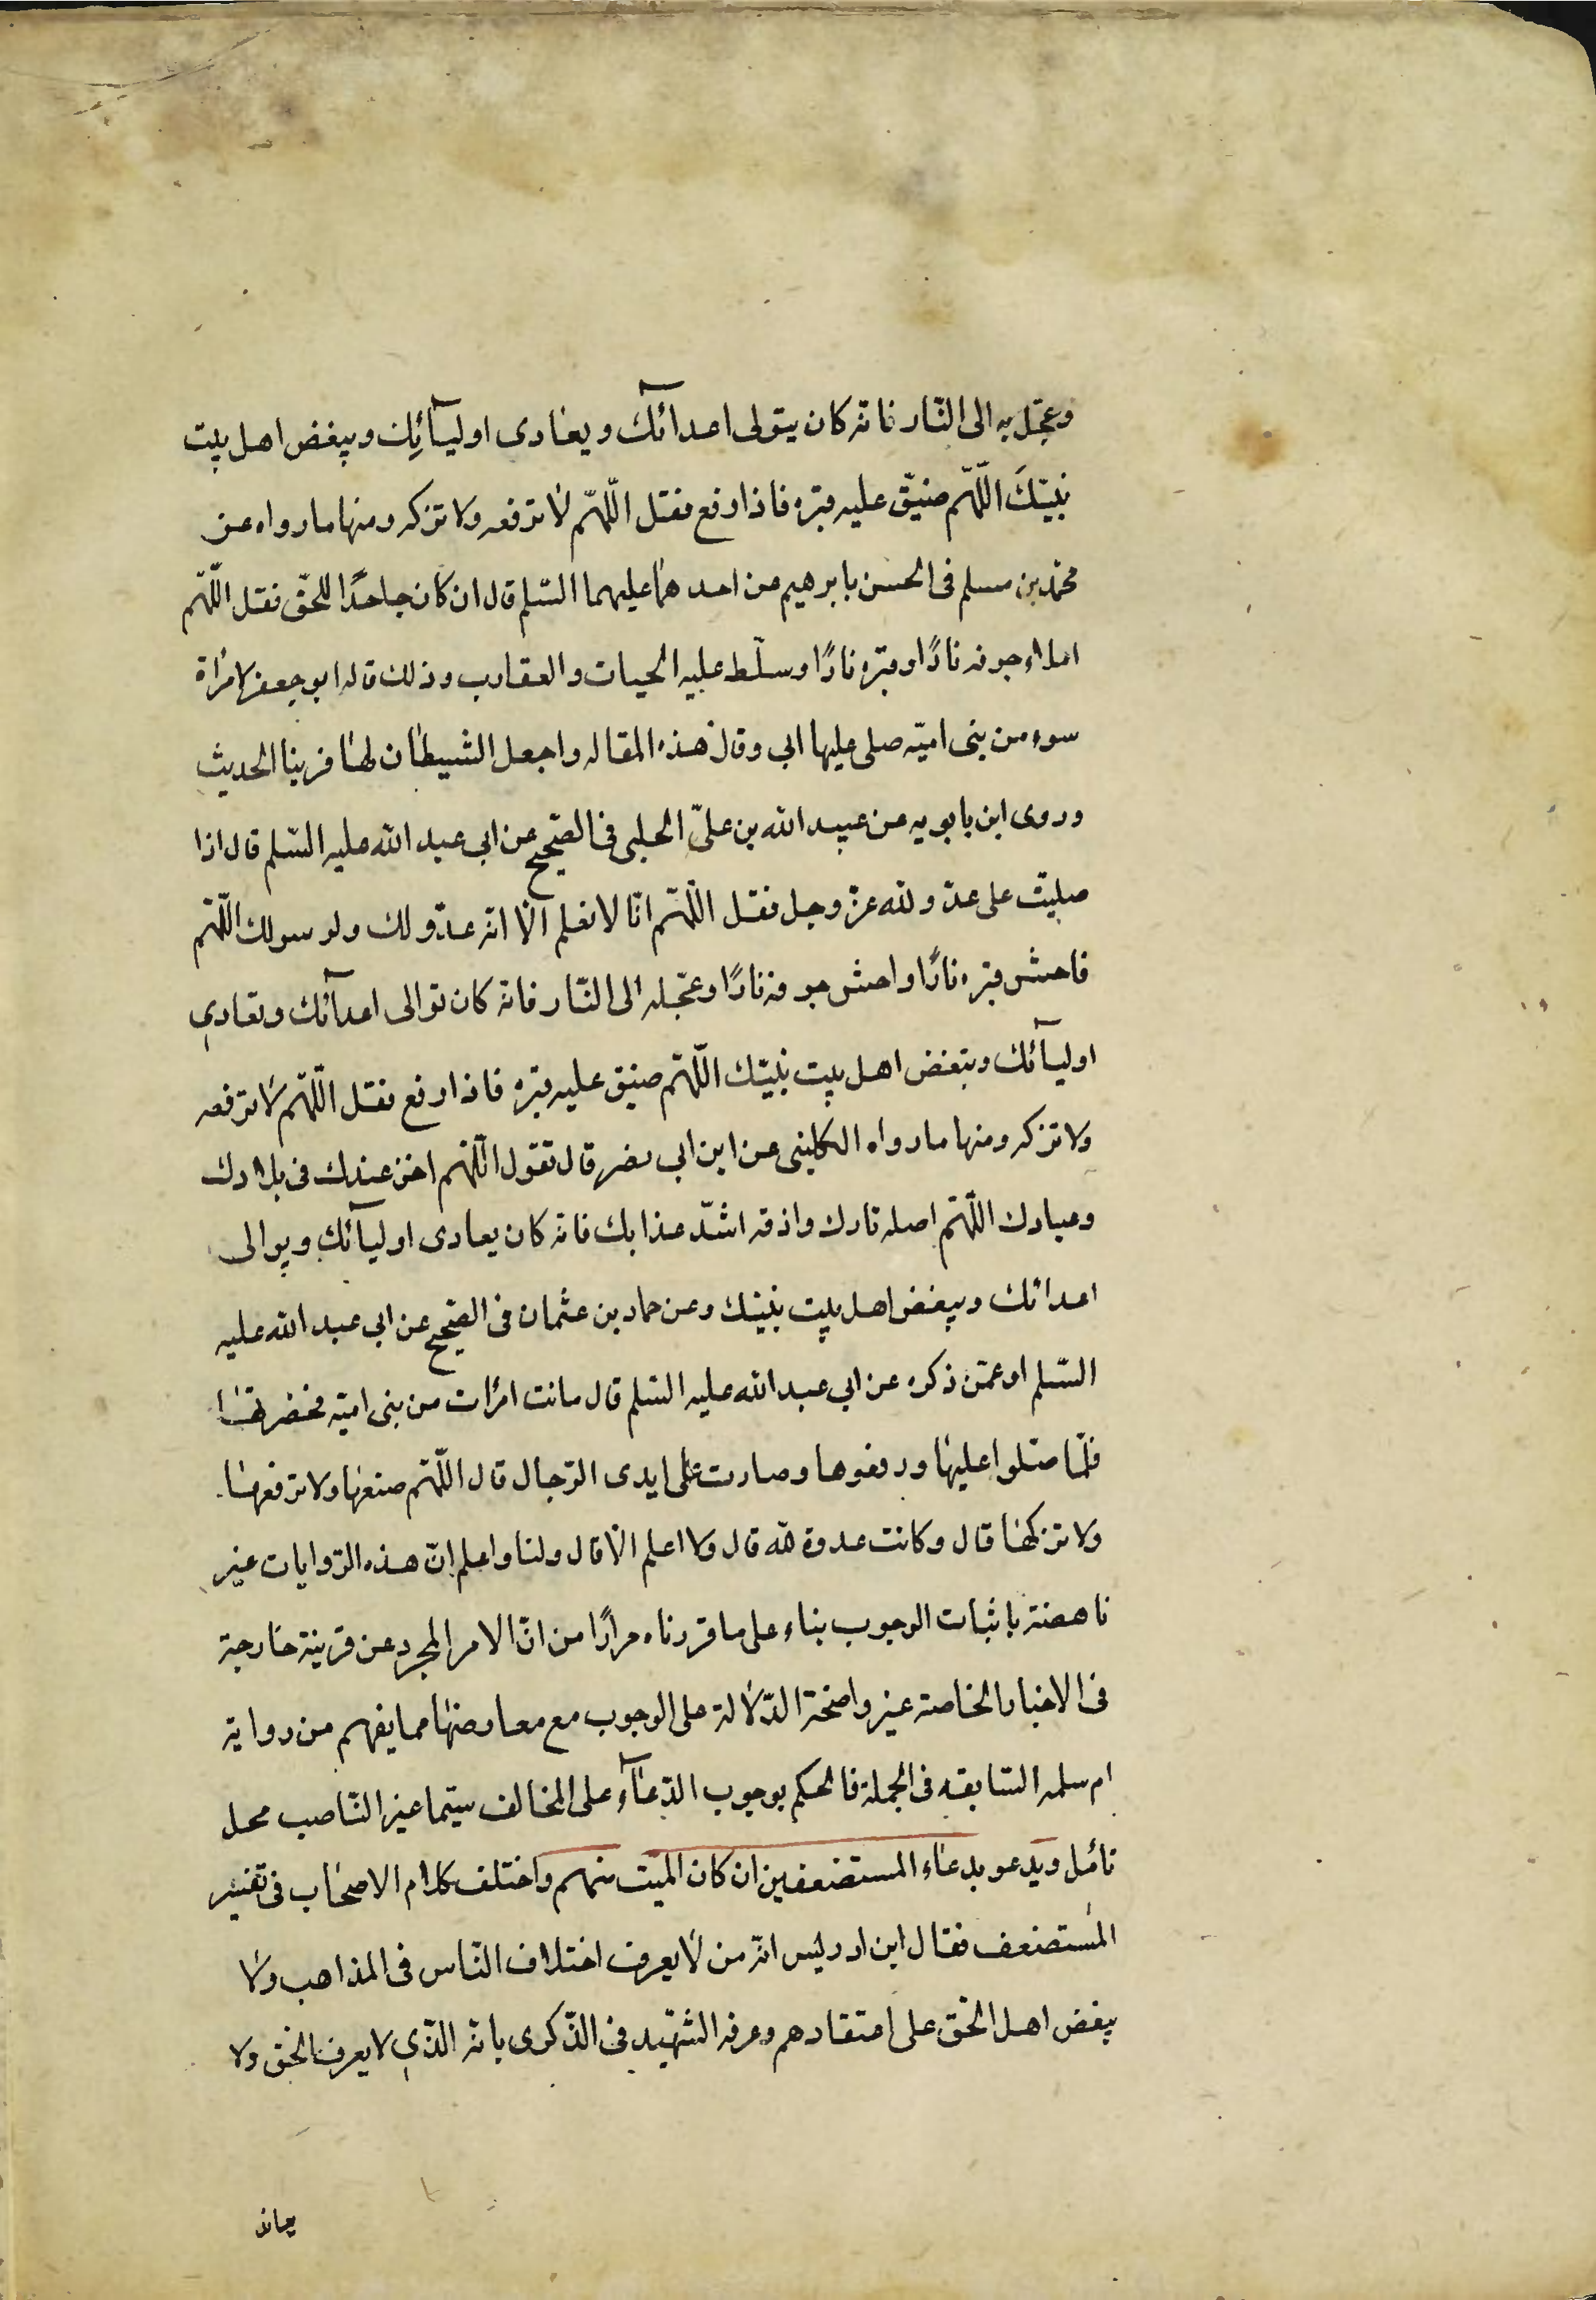 وعجّل به الى النّار فانّه كان يتولى اعدآئك ويعادى اوليآئك ويبغض اهل بيت
نبيّك اللّهم ضيّق عليه قبره فاذا رفع فقل اللّهم لا ترفعه ولا تزكه ومنها ما رواه عن
محمّد بن مسلم فى الحسن بابرهيم عن احدهما عليهما السّلم قال ان كان جاحدًا للحقّ فقل اللّهم
املاء جوفه نارًا وقبره نارًا وسلّط عليه الحيات والعقارب وذلك قاله ابو جعفر لامرأة
سوء من بنى اميّه صلى عليها ابى وقال هذه المقاله واجعل الشيطان لها قرينا الحديث
وروى ابن بابويه عن عبيد الله بن علىّ الحلبى فى الصّحيح عن ابى عبد الله عليه السّلم قال اذا
صليّت على عدّو لله عزّ وجل فقل اللّهم انّا لا نعلم الّا انّه عدّو لك ولرسولك اللّهم
فاحش قبره نارًا واحش جوفه نارًا وعجّله الى النّار فانّه كان توالى اعدآئك وتعادى
اوليآئك وتبغض اهل بيت نبيّك اللّهم ضيق عليه قبره فاذا رفع فقل اللّهم لا ترفعه
ولا تزكه ومنها ما رواه الكلينى عن ابن ابى نصر قال تقول اللّهم اخز عبدك فى بلادك
وعبادك اللّهم اصله نارك واذقه اشدّ عذابك فانّه كان يعادى اوليآئك ويوالى
اعدائك ويبغض اهل بيت نبيّك وعن حماد بن عثمان فى الصّحيح عن ابى عبد الله عليه
السّلم او عمّن ذكره عن ابى عبد الله عليه السّلم قال ماتت امرأت من بنى اميّه فحضرتها
فلمّا صلّوا عليها ورفعوها وصارت على ايدى الرّجال قال اللّهم ضعها ولا ترفعها
ولا تزكها قال وكانت عدوة لله قال ولا اعلم الّا قال ولنا واعلم انّ هذه الرّوايات غير
ناهضة باثبات الوجوب بناء على ما قررناه مرارًا من انّ الامر المجرد عن قرينة خارجة
فى الاخبار الخاصة غير واضحة الدّلالة على الوجوب مع معارضتها مما يفهم من رواية
ام سلمه السّابقه فى الجملة فالحكم بوجوب الدّعآء على المخالف سيّما غير النّاصب محل
تأمّل ويدعو بدعاء المستضعفين ان كان الميّت منهم واختلف كلام الاصحاب فى تفسير
المستضعف فقال ابن ادريس انّه من لا يعرف اختلاف النّاس فى المذاهب ولا
يبغض اهل الحّق على اعتقادهم وعرفه الشّهيد فى الذّكرى بانّه الذّى لا يعرف الحّق ولا
يعاند